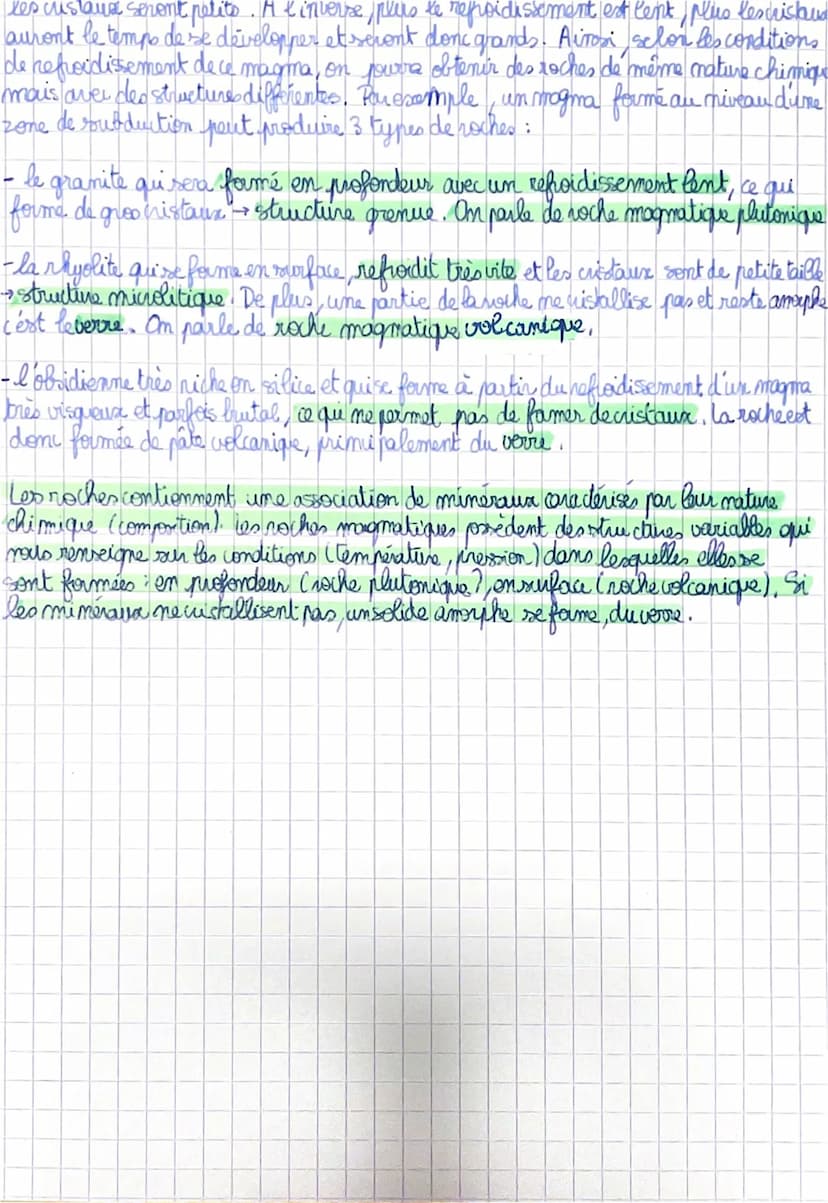 les cristaux seront petits. A l'inverse, plus le refroidissement est lent, plus les cristaux
auront le temps de se développer et seront donc grands. Ainsi, selon les conditions
de refroidissement de ce magma, on pourra obtenir des roches de même nature chimique
mais avec des structures différentes. Par exemple, un magma formé au niveau d'une
zone de subduction peut produire 3 types de roches :
- le granite qui sera formé en profondeur avec un refroidissement lent, ce qui
forme de gros cristaux → structure grenue. On parle de roche magmatique plutonique
- la rhyolite qui se forme en surface, refroidit très vite et les cristaux sont de petite taille
→ structure microlitique. De plus, une partie de la roche ne cristallise pas et reste amorphe
c'est le verre. On parle de roche magmatique volcanique.
- l'obsidienne très riche en silice et qui se forme à partir du refroidissement d'un magma
très visqueux et parfois brutal, ce qui ne permet pas de former de cristaux. La roche est
donc formée de pâte volcanique, principalement du verre.
Les roches contiennent une association de minéraux caractérisés par leur nature
chimique (comportion). Les roches magmatiques possèdent des structures variables qui
nous renseigne sur les conditions (température, pression) dans lesquelles elles se
sont formées : en profondeur (roche plutonique), en surface (roche volcanique). Si
les minéraux ne cristallisent pas, un solide amorphe se forme, du verre.